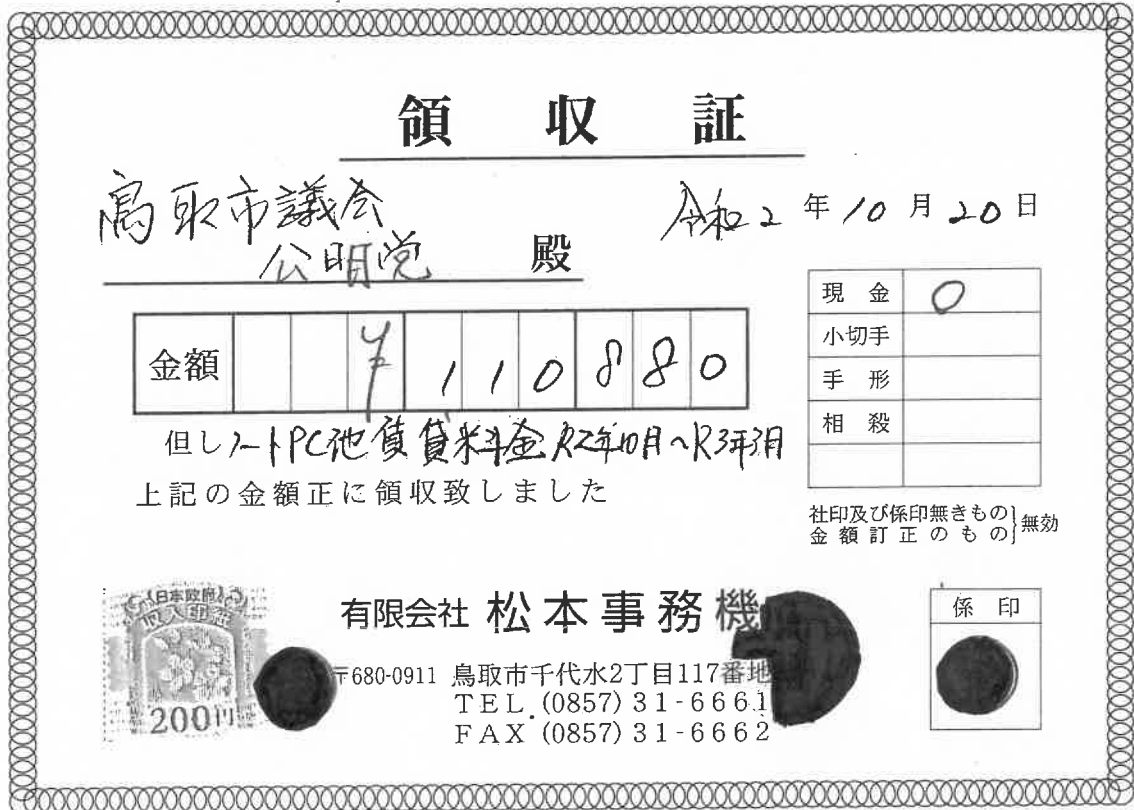 領収証
鳥取市議会
公明党 殿
令和2年10月20日
現金 〇
小切手
手形
相殺
金額 ¥110880
但しノートPC他賃貸料金R2年10月〜R3年3月
上記の金額正に領収致しました
社印及び係印無きもの
金額訂正のもの}無効
日本政府
収入印紙
200円
有限会社 松本事務機
〒680-0911 鳥取市千代水2丁目117番地
TEL.(0857)31-6661
FAX(0857)31-6662
係印